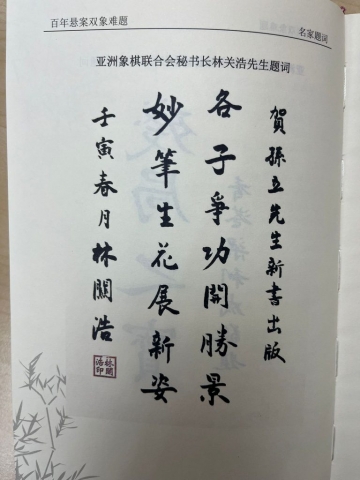 百年悬案双象难题
名家题词
亚洲象棋联合会秘书长林关浩先生题词
賀孫立先生新書出版
各子爭功開勝景
妙筆生花展新姿
壬寅春月林關浩
林關浩印